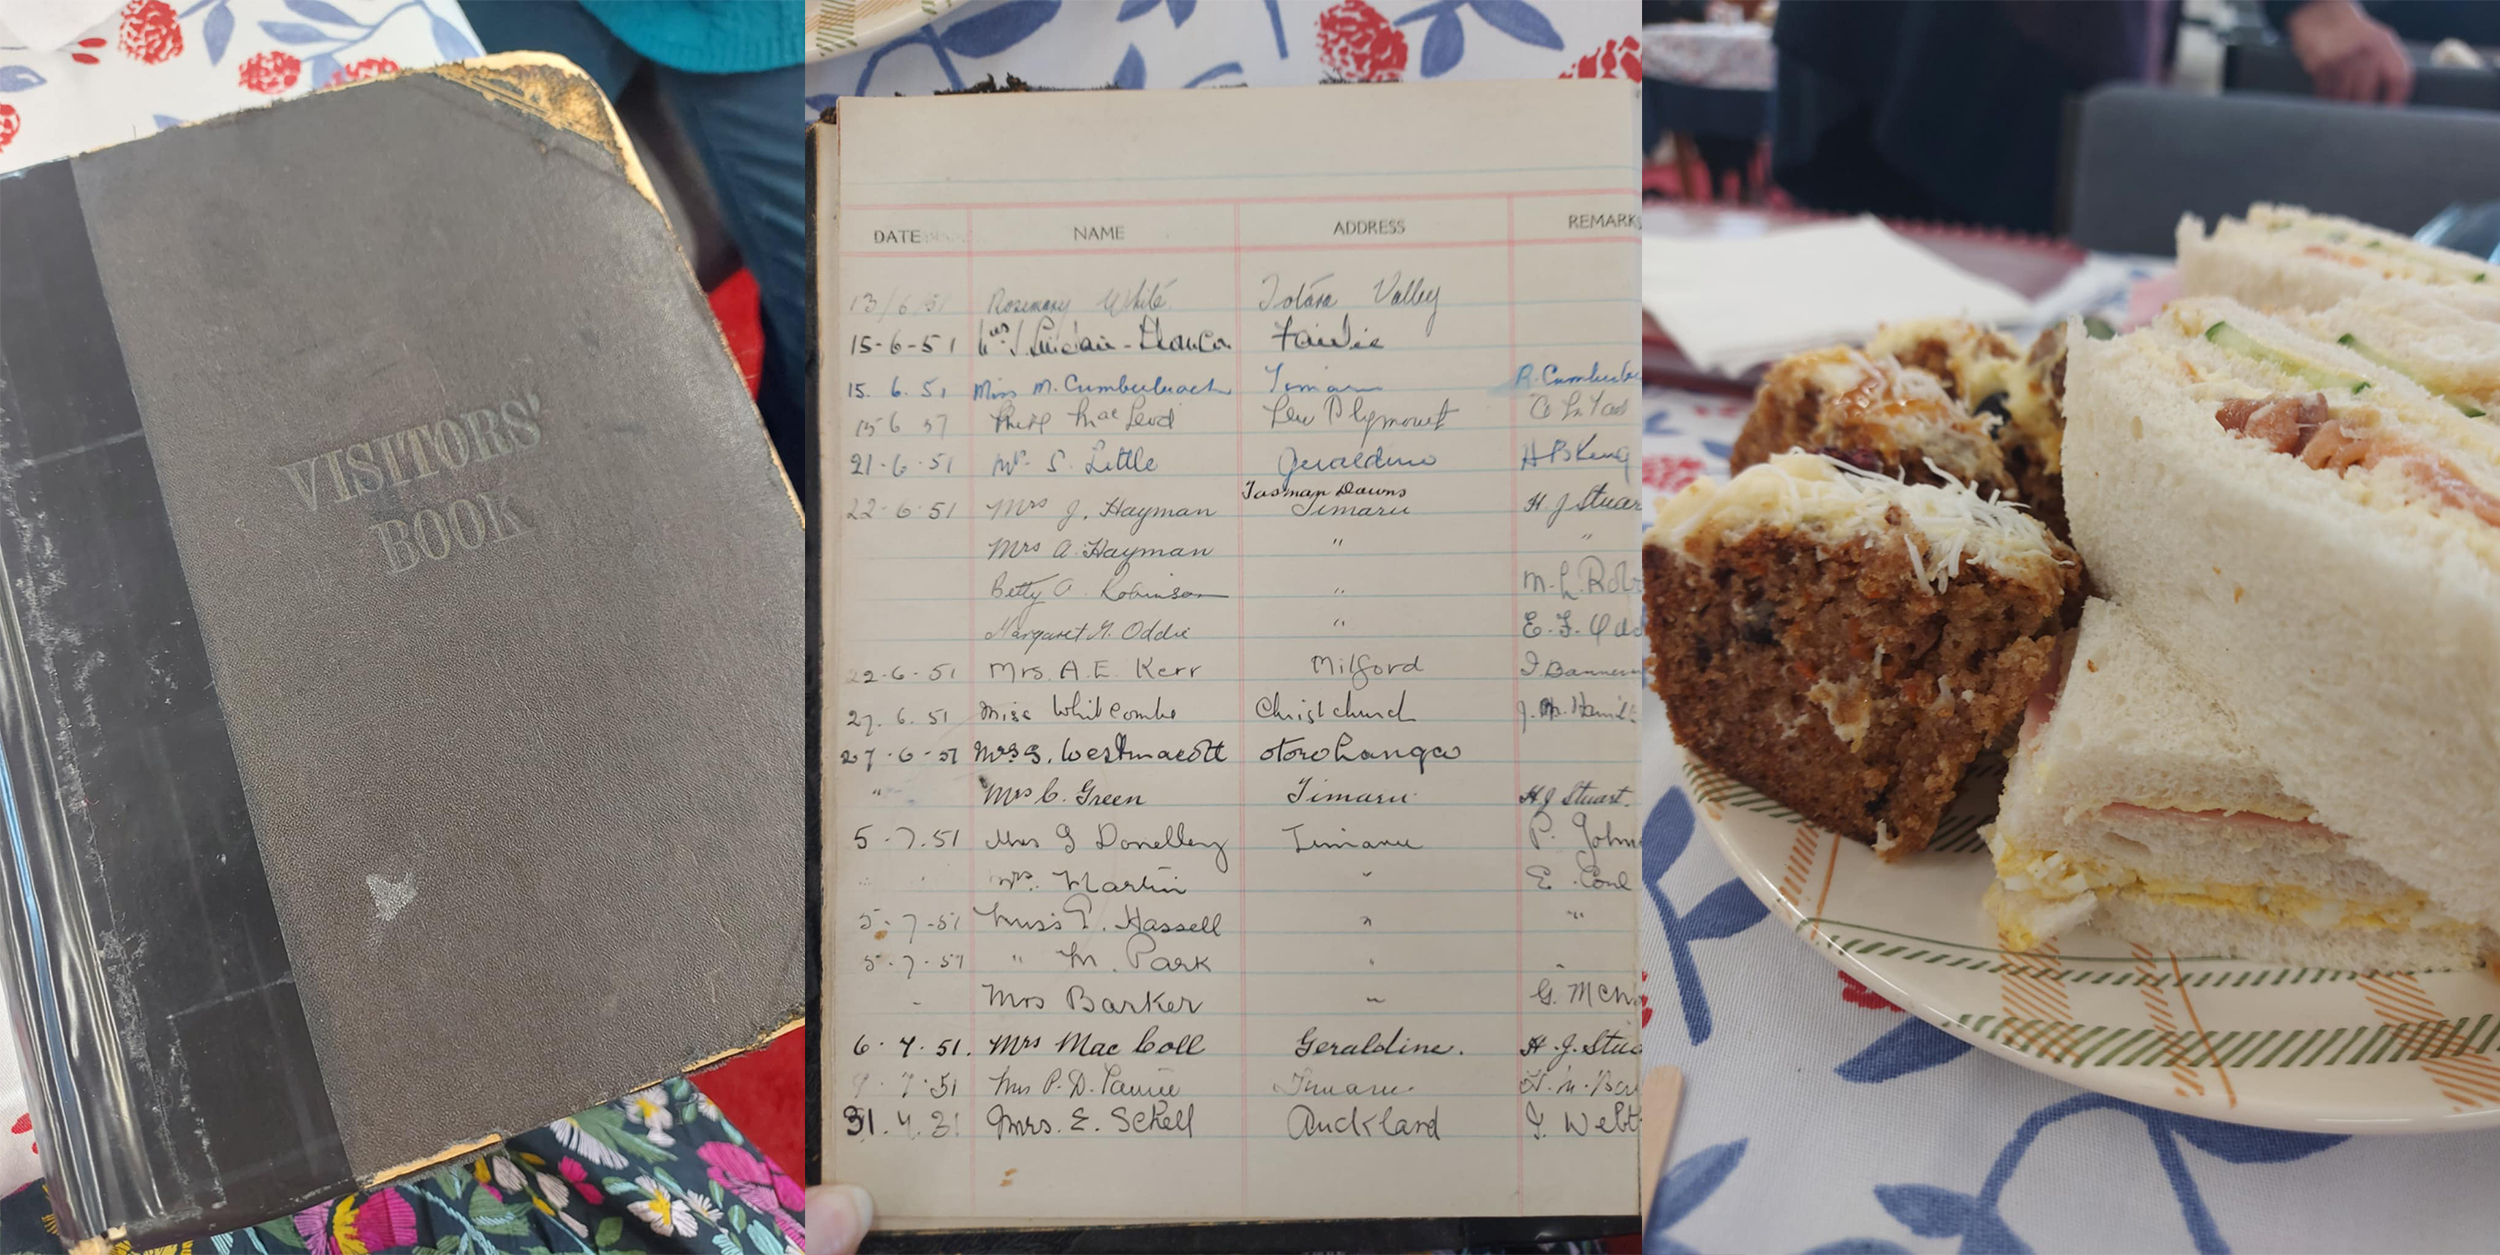 VISITORS'
BOOK
DATE NAME ADDRESS REMARKS
13/6/51 Rosemary White. Totara Valley
15-6-51 Mrs J. Fairlie
15. 6. 51 Miss M. Cumberbeach Timaru R. Cumberbe
15 6 51 MacLeod New Plymouth
21-6-51 Mrs S. Little Geraldine H B King
Tasman Downs
22-6-51 Mrs J. Hayman Timaru H. J Stuar
Mrs A. Hayman " "
Betty A. Robinson " M. L. Rob
Margaret G. Oddie " E. F. Odd
22-6-51 Mrs. A. E. Kerr Milford J. Bannerm
27. 6. 51 Miss Whitcombe Christchurch J. M. Hamilt
27-6-51 Mrs G. Westmacott Otorohanga
" Mrs C. Green Timaru H J Stuart.
5-7.51 Mrs G Donelley Timaru P. John
Mrs. Martin " E.
5-7-51 Miss P. Hassell " "
5-7-51 " M. Park "
Mrs Barker " G. McN
6. 7. 51. Mrs Mac Coll Geraldine. H. J. Stua
7. 51 Mrs P. D. Timaru.
31. Mrs. E. Schell Auckland J. Webb